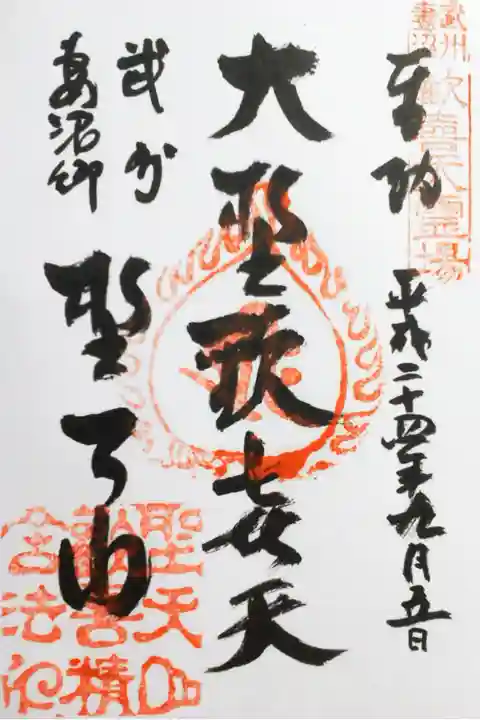 武州
妻沼
歓喜天霊場
奉拝
平成二十四年九月五日
大聖歓喜天
武州
妻沼郷
聖天山
聖天山
歡喜精
舎法印